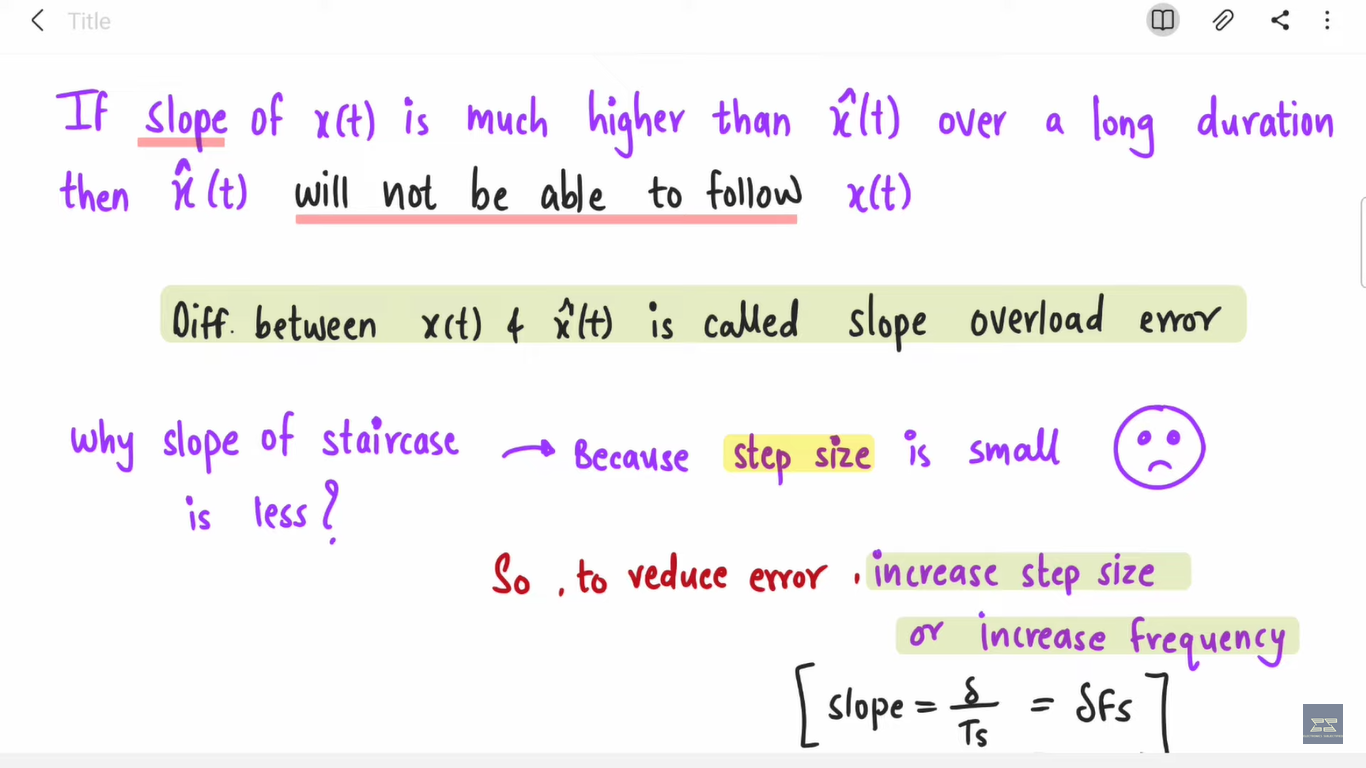 Title
If slope of x(t) is much higher than x̂(t) over a long duration
then x̂(t) will not be able to follow x(t)
Diff. between x(t) & x̂(t) is called slope overload error
why slope of staircase → Because step size is small
is less?
So, to reduce error, increase step size
or increase frequency
[slope = δ/Ts = δFs]